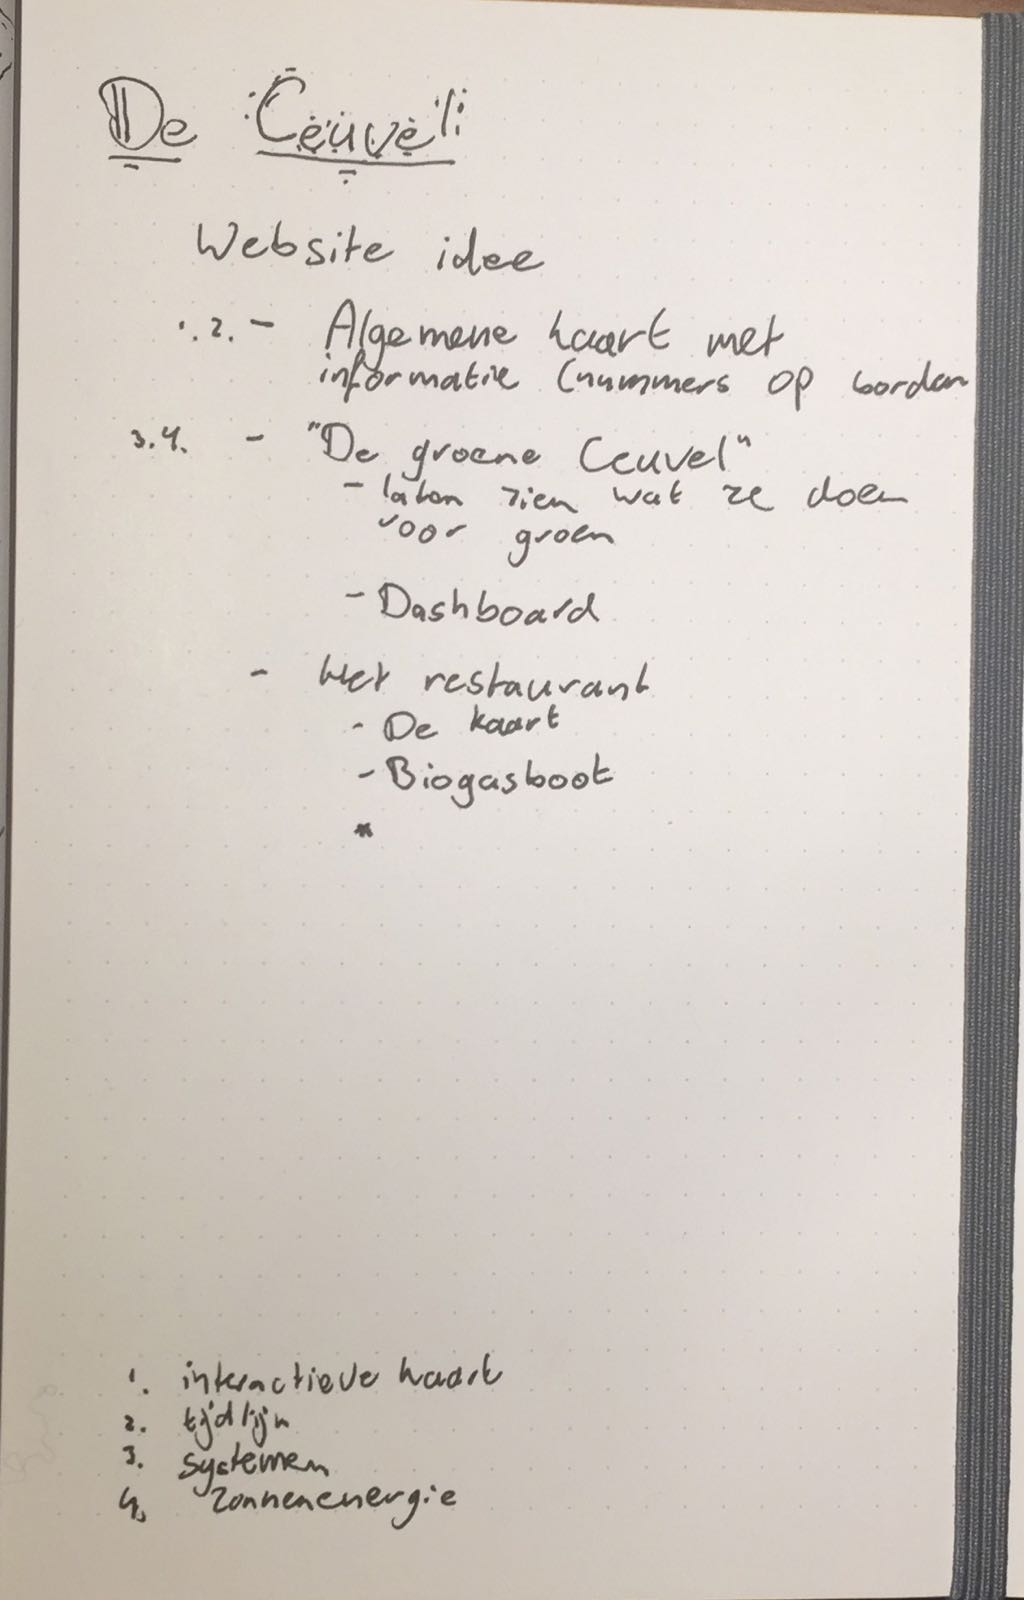 De Ceuvel
Website idee
1.2. - Algemene kaart met
informatie (nummers op borden
3.4. - "De groene Ceuvel"
- laten zien wat ze doen
voor groen
- Dashboard
- Het restaurant
- De kaart
- Biogasboot
*
1. interactieve kaart
2. tijdlijn
3. systemen
4. Zonnenenergie